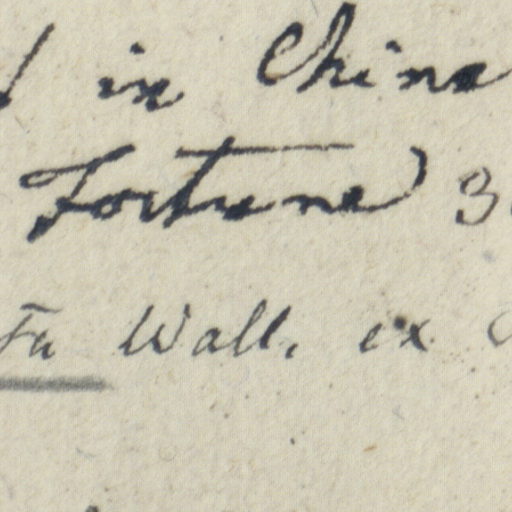 in China
Fortune) 3
Wall. ex